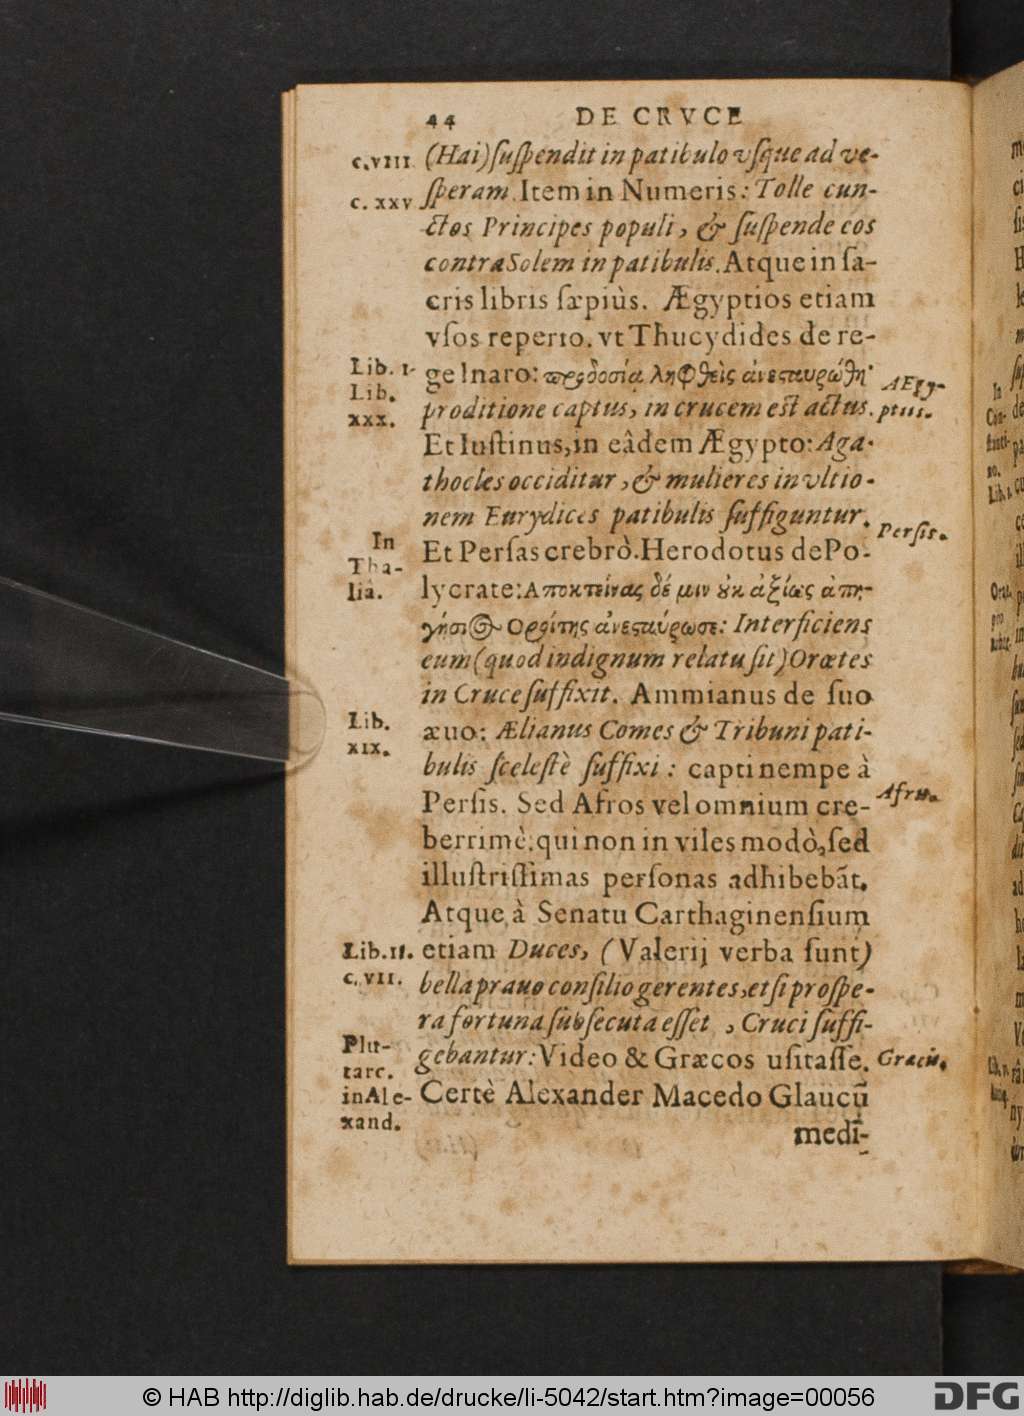 44 DE CRVCE
c.VIII. (Hai) ſuſpendit in patibulo vſque ad ve-
c. xxv ſperam. Item in Numeris: Tolle cun-
ctos Principes populi, & ſuſpende eos
contra Solem in patibulis. Atque in ſa-
cris libris ſæpiùs. Ægyptios etiam
vſos reperio. vt Thucydides de re-
Lib. 1. ge Inaro: προδοσίᾳ ληφθεὶς ἀνεσταυρώθη·
AEgy-
Lib. proditione captus, in crucem est actus.
ptii.
xxx.
Et Iuſtinus, in eâdem Ægypto: Aga-
thocles occiditur, & mulieres in vltio-
nem Eurydices patibulis ſuffiguntur.
Persis.
In Et Perſas crebrò. Herodotus de Po-
Tha- lycrate: Αποκτείνας δέ μιν ȣκ ἀξίως ἀπη-
liâ.
γήσιος Οροίτης ἀνεσταύρωσε: Interficiens
eum (quod indignum relatu ſit) Orœtes
in Cruce ſuffixit. Ammianus de ſuo
Lib. æuo: Ælianus Comes & Tribuni pati-
xıx. bulis ſceleſtè ſuffixi: capti nempe à
Perſis. Sed Afros vel omnium cre-
Afris.
berrimè: qui non in viles modò, ſed
illuſtriſſimas perſonas adhibebãt.
Atque à Senatu Carthaginenſium
Lib. 11. etiam Duces, (Valerij verba ſunt)
c. VII. bella prauo conſilio gerentes, etſi proſpe-
ra fortuna ſubſecuta eſſet, Cruci ſuffi-
Plu- gebantur: Video & Græcos uſitaſſe.
Græcis.
tarc.
in Ale- Certè Alexander Macedo Glaucũ
xand.
medi-
© HAB http://diglib.hab.de/drucke/li-5042/start.htm?image=00056
DFG